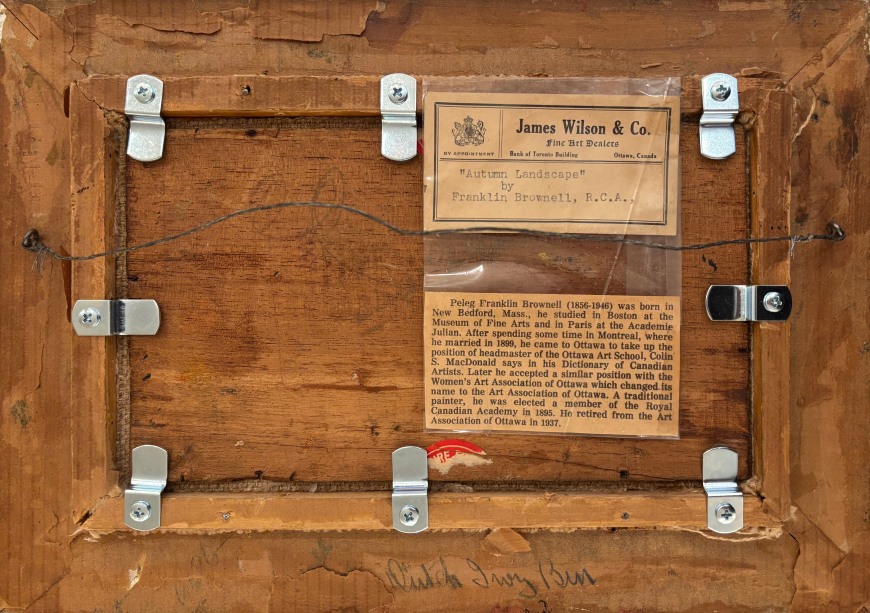 BY APPOINTMENT
James Wilson & Co.
Fine Art Dealers
Bank of Toronto Building Ottawa, Canada
"Autumn Landscape"
by
Franklin Brownell, R.C.A.,
Peleg Franklin Brownell (1856-1946) was born in
New Bedford, Mass., he studied in Boston at the
Museum of Fine Arts and in Paris at the Academie
Julian. After spending some time in Montreal, where
he married in 1899, he came to Ottawa to take up the
position of headmaster of the Ottawa Art School, Colin
S. MacDonald says in his Dictionary of Canadian
Artists. Later he accepted a similar position with the
Women's Art Association of Ottawa which changed its
name to the Art Association of Ottawa. A traditional
painter, he was elected a member of the Royal
Canadian Academy in 1895. He retired from the Art
Association of Ottawa in 1937.